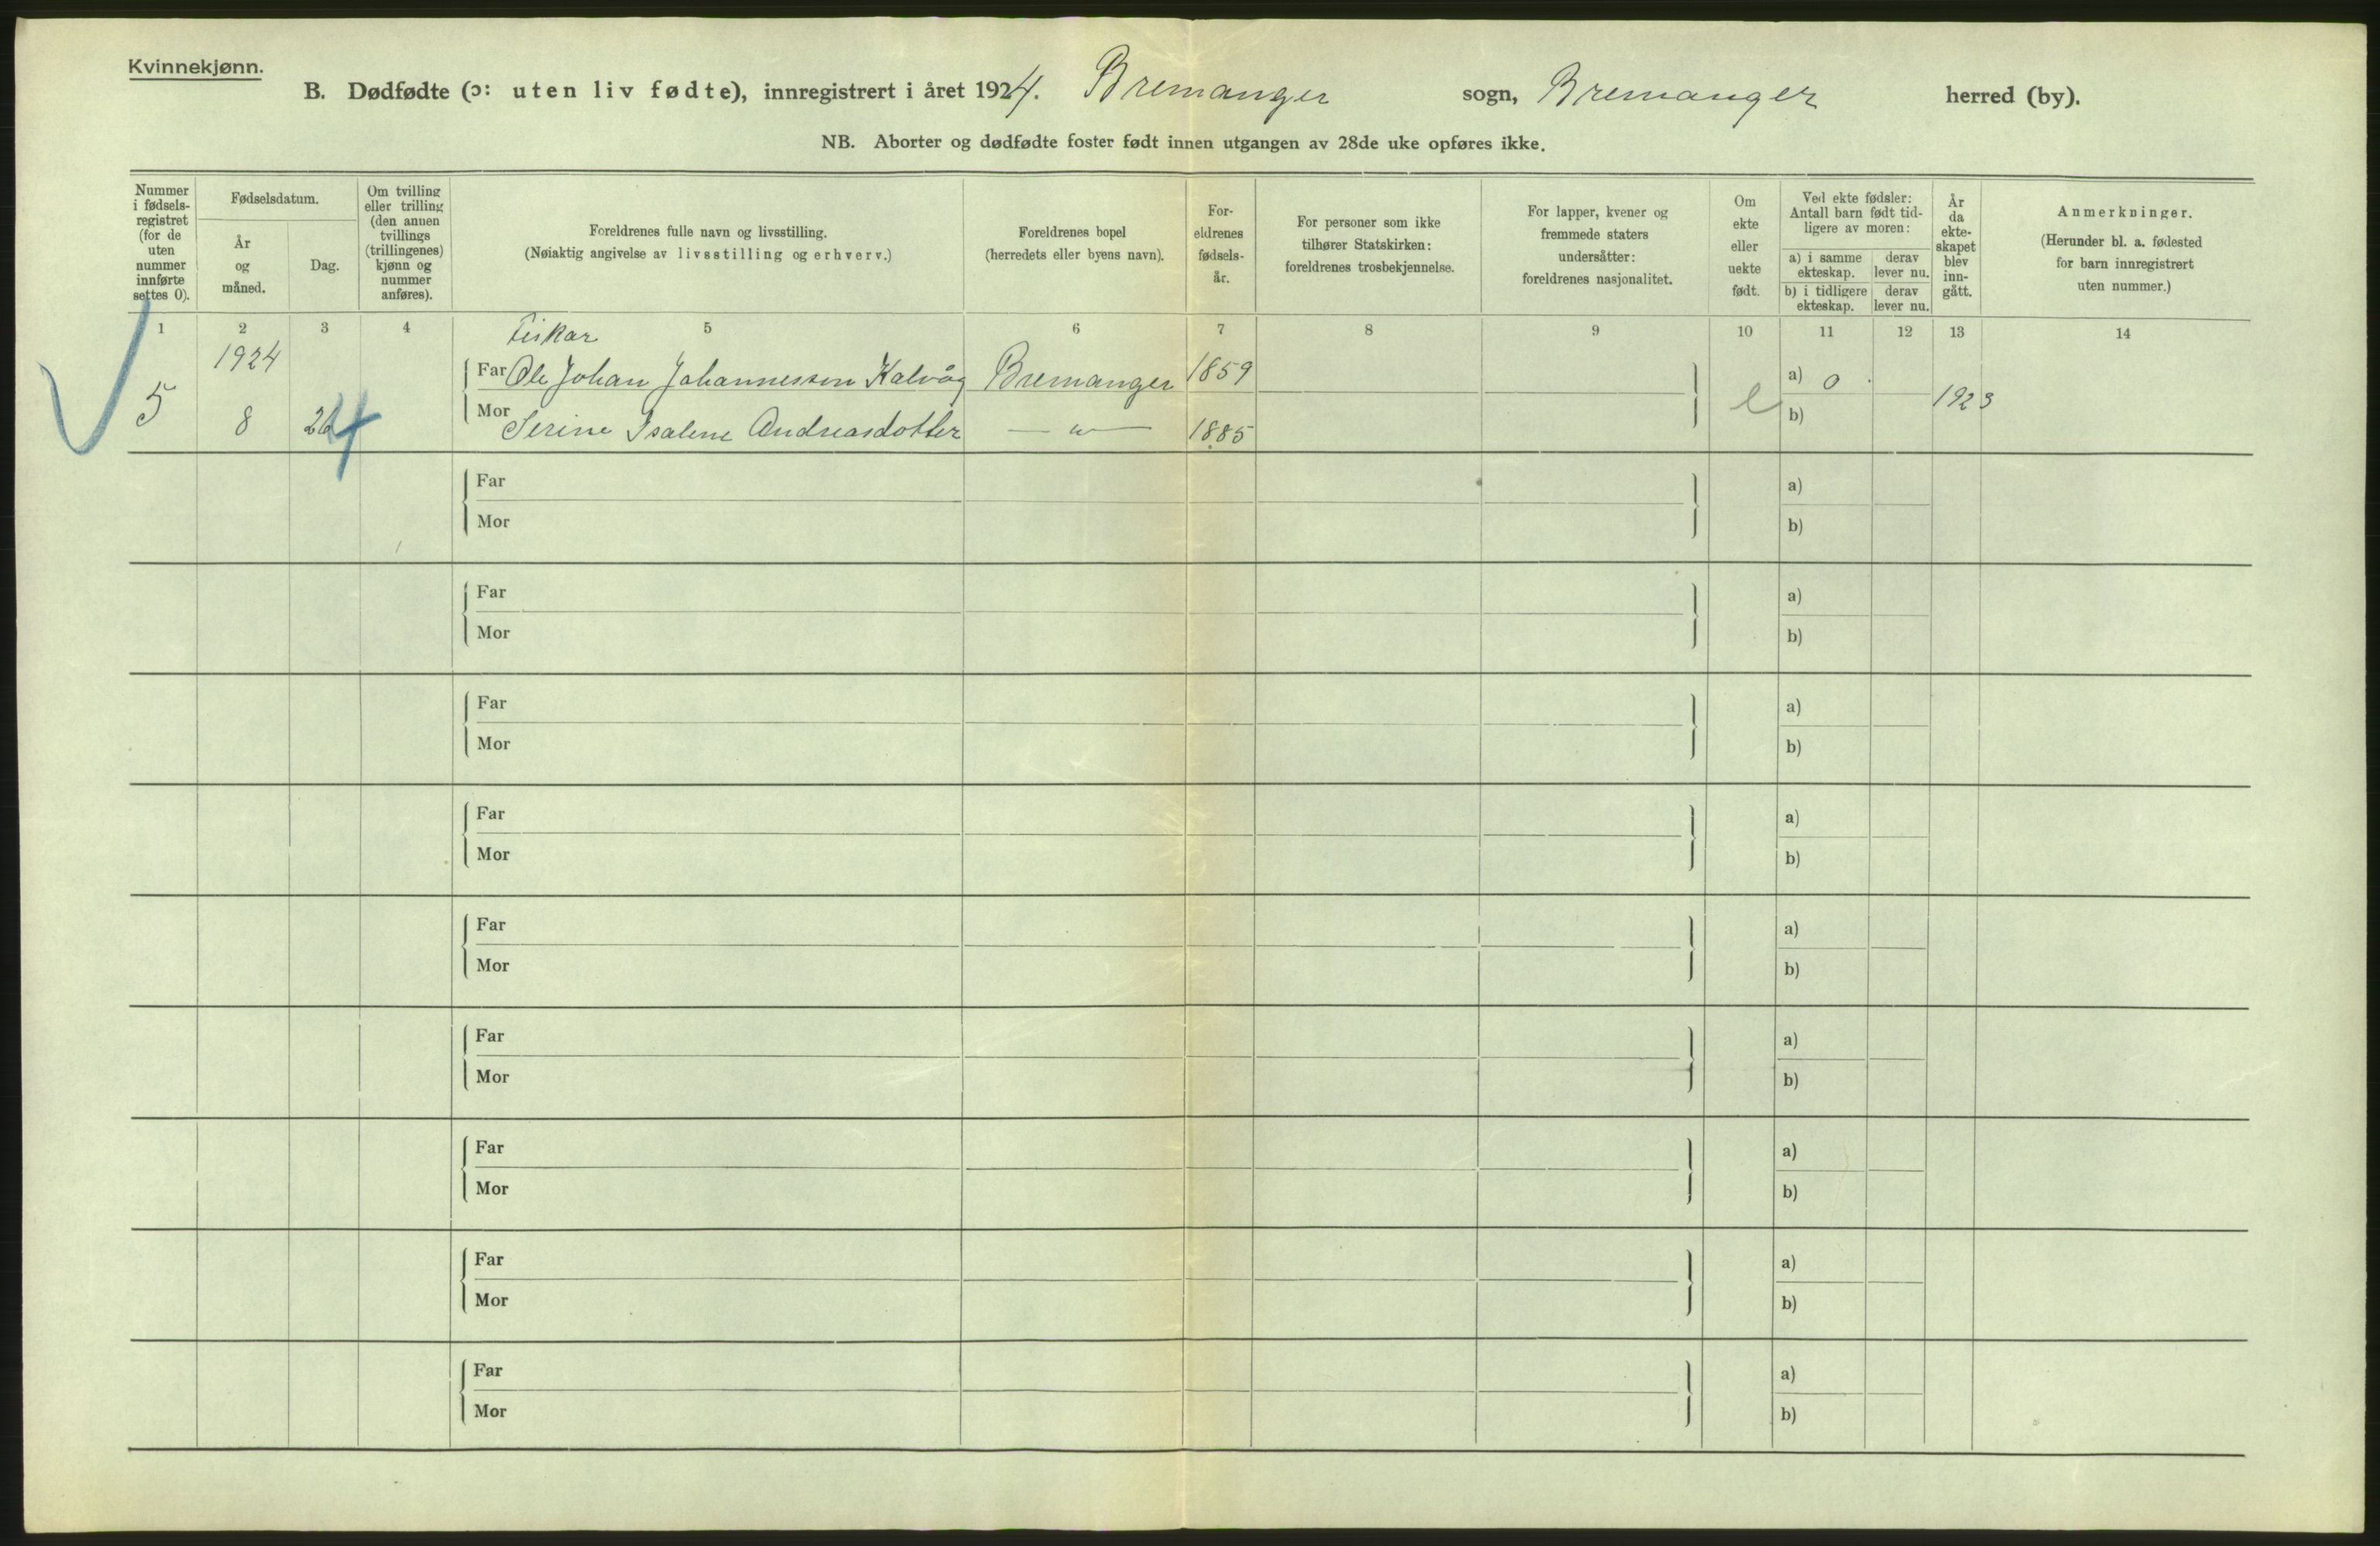 Kvinnekjønn.
B. Dødfødte (ɔ: uten liv fødte), innregistrert i året 1924. Bremanger sogn, Bremanger herred (by).
NB. Aborter og dødfødte foster født innen utgangen av 28de uke opføres ikke.
Nummer i fødsels- registret (for de uten nummer innførte settes 0).
Fødselsdatum.
År og måned.
Dag.
Om tvilling eller trilling (den annen tvillings (trillingenes) kjønn og nummer anføres).
Foreldrenes fulle navn og livsstilling.
(Nøiaktig angivelse av livsstilling og erhverv.)
Foreldrenes bopel
(herredets eller byens navn).
For- eldrenes fødsels- år.
For personer som ikke tilhører Statskirken: foreldrenes trosbekjennelse.
For lapper, kvener og fremmede staters undersåtter: foreldrenes nasjonalitet.
Om ekte eller uekte født.
Ved ekte fødsler: Antall barn født tid- ligere av moren:
a) i samme ekteskap.
derav lever nu.
b) i tidligere ekteskap.
derav lever nu.
År da ekte- skapet blev inn- gått.
Anmerkninger.
(Herunder bl. a. fødested for barn innregistrert uten nummer.)
1 2 3 4 5 6 7 8 9 10 11 12 13 14
Fiskar
1924
Far Ole Johan Johannessen Kalvåg Bremanger 1859 a) 0
5 8 e 1923
Mor Serine Isalene Andreasdotter — " — 1885 b)
Far a)
Mor b)
Far a)
Mor b)
Far a)
Mor b)
Far a)
Mor b)
Far a)
Mor b)
Far a)
Mor b)
Far a)
Mor b)
Far a)
Mor b)
Far a)
Mor b)